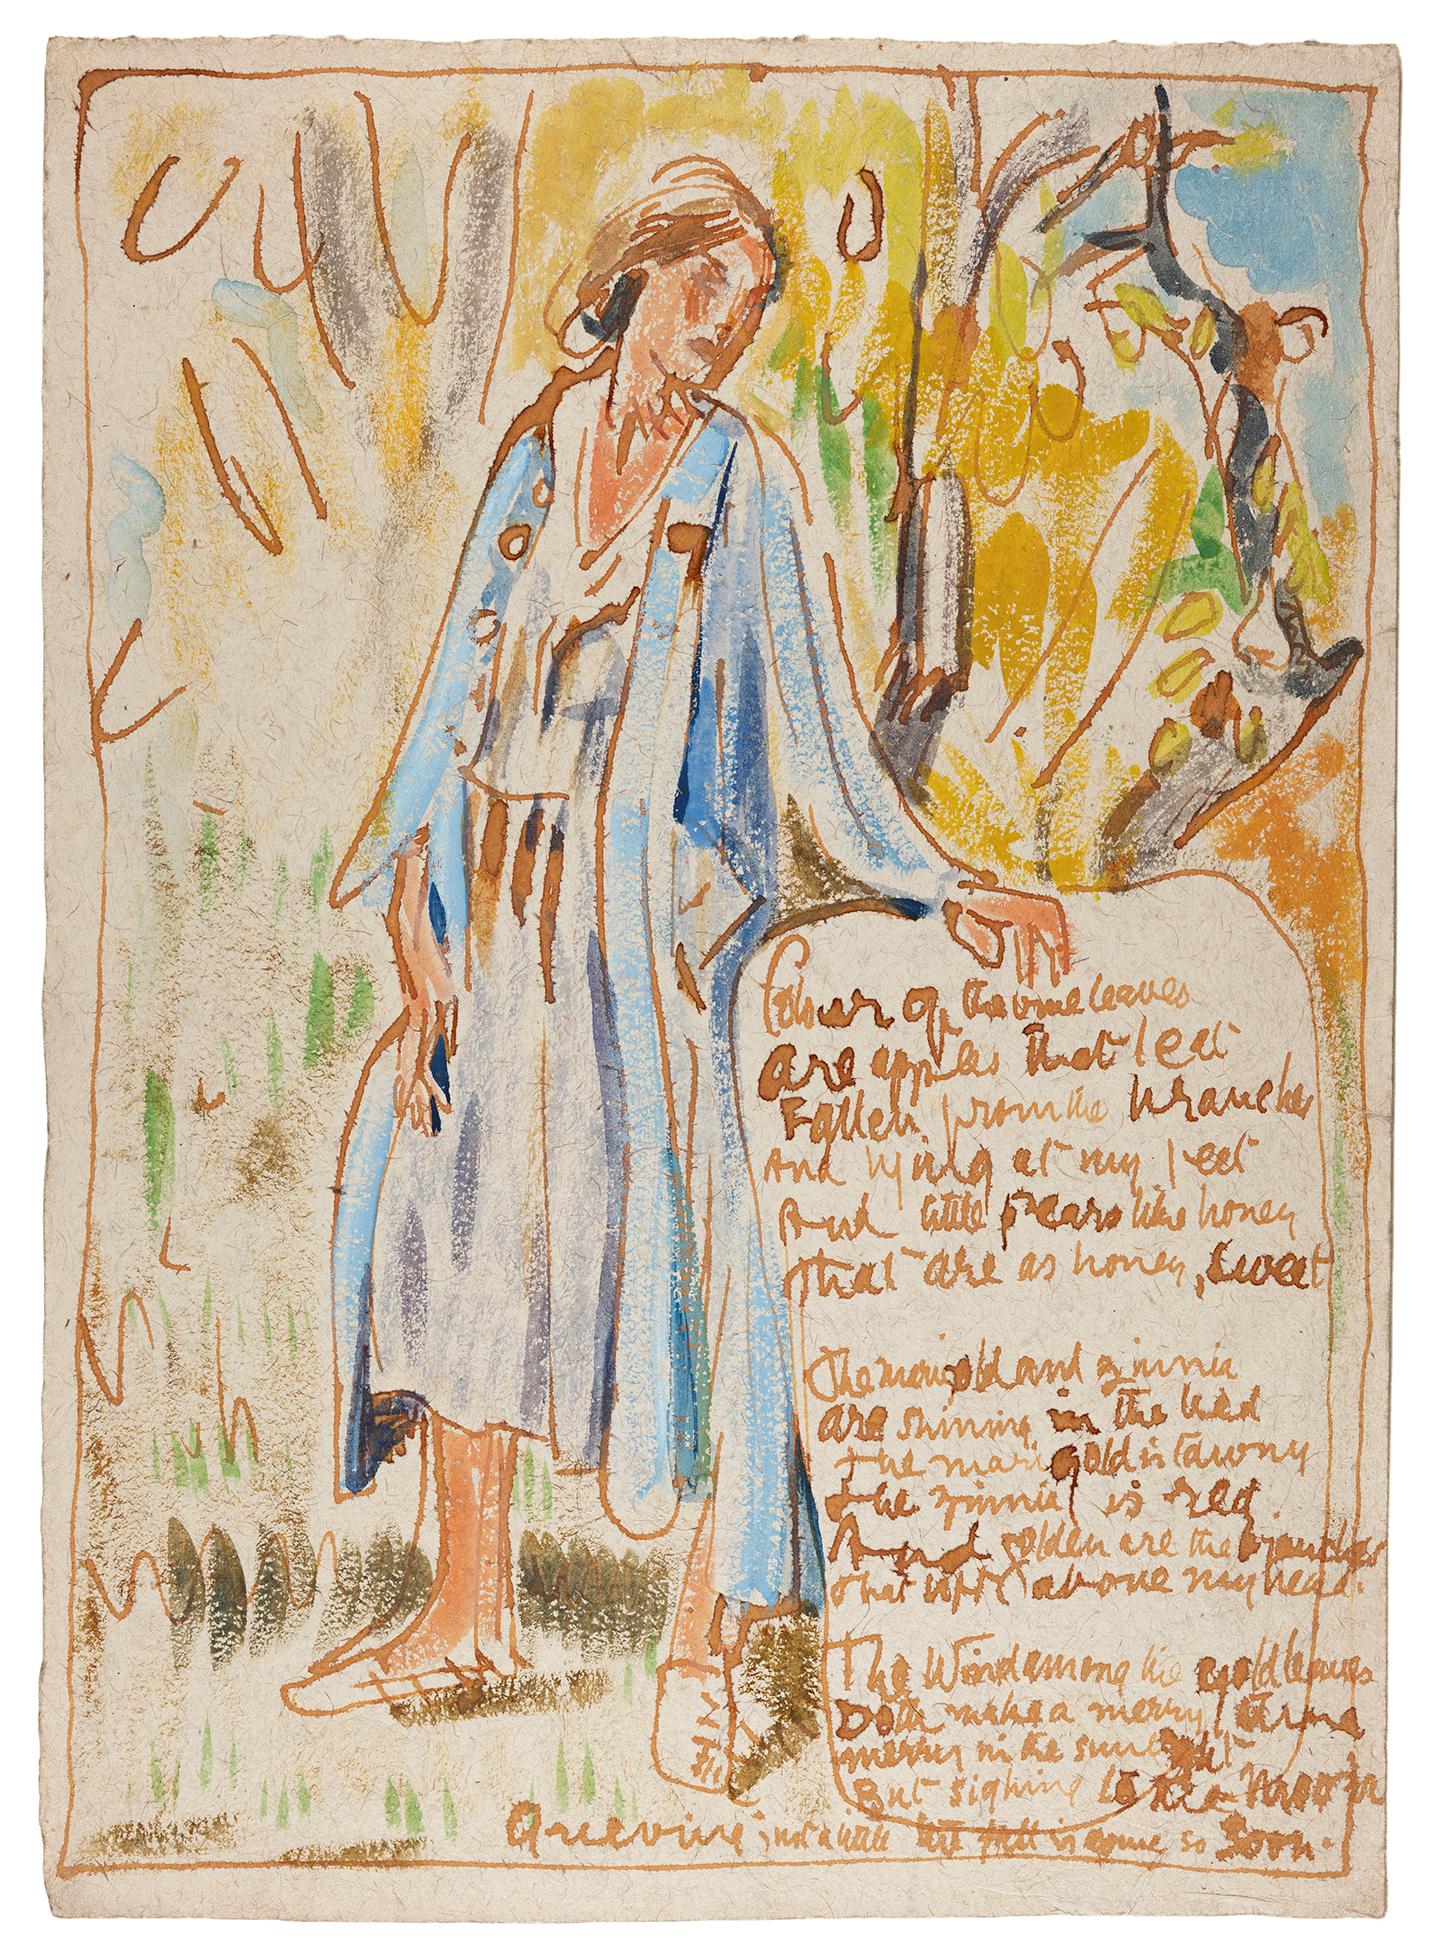 Colour of the vine leaves
are apples that lett
Fallen from the branches
And lying at my feet
And little pears like honey
that are as honey, sweet
The marigold and zinnia
are shining in the bed
the marigold is tawny
the zinnia is red
And golden are the branches
that above my head.
The Wind among the gold leaves
Doth make a merry tune
merry in the sunlight
But sighing to the moon
Grieving just a little that fall is gone so soon.